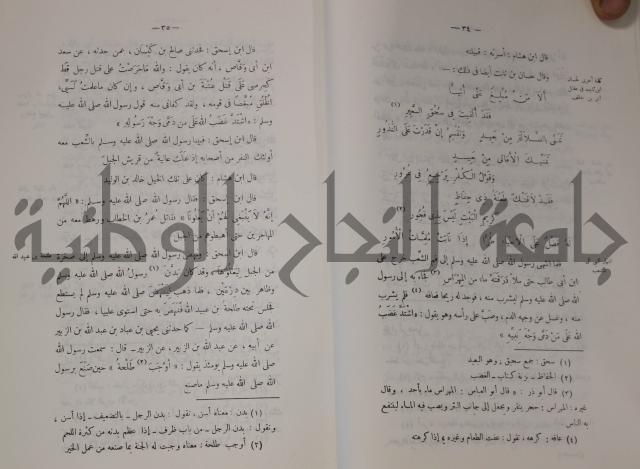 — ٣٤ —
قال ابن هشام : أسرته : قبيلته
وقال حسان بن ثابت أيضا في ذلك : —
ألا من مبلغ عني أبيا
فقد ألقيت في سحق السعير (١)
تمنى بالضلالة من بعيد
وتقسم إن قدرت على النذور
تمنيك الأماني من بعيد
وقول الكفر يرجع في غرور
فقد لاقتك طعنة ذي حفاظ
كريم البيت ليس بذي فجور (٢)
له فضل على الأحياء طرا
إذا نابت ملمات الأمور
انتهى رسول الله صلى الله عليه وسلم إلى فم الشعب خرج على
ابن أبي طالب حتى ملأ درقته ماء من المهراس (٣) فجاء به إلى رسول
الله صلى الله عليه وسلم ليشرب منه ، فوجد له ريحا فعافه (٤) فلم يشرب
منه ، وغسل عن وجهه الدم ، وصب على رأسه وهو يقول : « اشتد غضب
الله على من دمى وجه نبيه »
(١) سحق : جمع سحيق ، وهو البعيد
(٢) الحفاظ – بزنة كتاب – الغضب
(٣) قال أبو ذر : « قال أبو العباس : المهراس ماء بأحد ، وقال
غيره : المهراس : حجر ينقر ويجعل إلى جانب البئر ويصب فيه الماء لينتفع
به الناس .
(٤) عافه : كرهه ، تقول : عفت الطعام وغيره ؛ إذا كرهته
— ٣٥ —
قال ابن إسحق : فحدثني صالح بن كيسان ، عمن حدثه ، عن سعد
ابن أبي وقاص ، أنه كان يقول : والله ما حرصت على قتل رجل قط
كحرصي على قتل عتبة بن أبي وقاص ، وإن كان ما علمت لسيئ
الخلق مبغضا في قومه ، ولقد كفاني منه قول رسول الله صلى الله عليه
وسلم : « اشتد غضب الله على من دمى وجه رسوله »
قال ابن إسحق : فبينا رسول الله صلى الله عليه وسلم بالشعب معه
أولئك النفر من أصحابه إذ علت عالية من قريش الجبل
قال ابن هشام : كان على تلك الخيل خالد بن الوليد
قال ابن إسحق : فقال رسول الله صلى الله عليه وسلم : « اللهم
إنه لا ينبغي لهم أن يعلونا » فقاتل عمر بن الخطاب ورهط معه من
المهاجرين حتى أهبطوهم من الجبل
قال ابن إسحق : ونهض رسول الله صلى الله عليه وسلم إلى صخرة
من الجبل ليعلوها ، وقد كان بدن (١) رسول الله صلى الله عليه وسلم
وظاهر بين درعين ، فلما ذهب لينهض صلى الله عليه وسلم لم يستطع
فجلس تحته طلحة بن عبيد الله فنهض به حتى استوى عليها ، فقال رسول
الله صلى الله عليه وسلم — كما حدثني يحيى بن عباد بن عبد الله بن الزبير
عن أبيه ، عن عبد الله بن الزبير ، عن الزبير – قال : سمعت رسول الله
صلى الله عليه وسلم يومئذ يقول : « أوجب (٢) طلحة » حين صنع برسول
الله صلى الله عليه وسلم ما صنع
(١) بدن : معناه أسن ، تقول : بدن الرجل – بالتضعيف – إذا أسن ،
وتقول : بدن الرجل – من باب ظرف – إذا عظم بدنه من كثرة اللحم
(٢) أوجب طلحة : معناه وجبت له الجنة بما صنعه من عمل الخير
جامعة النجاح الوطنية